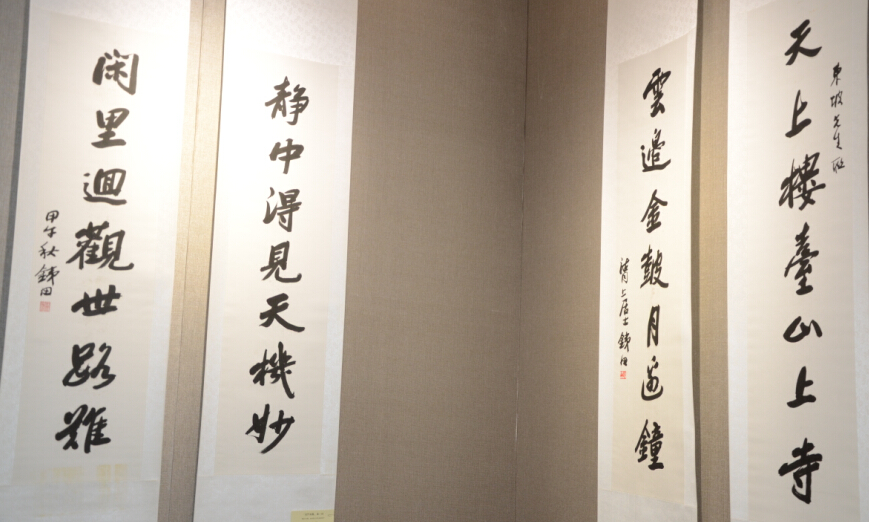 天上樓臺山上寺
東坡先生聯
雲邊金鼓月邊鐘
清上居士鐵田
静中得見天機妙
闲里迴觀世路難
甲午秋鐵田